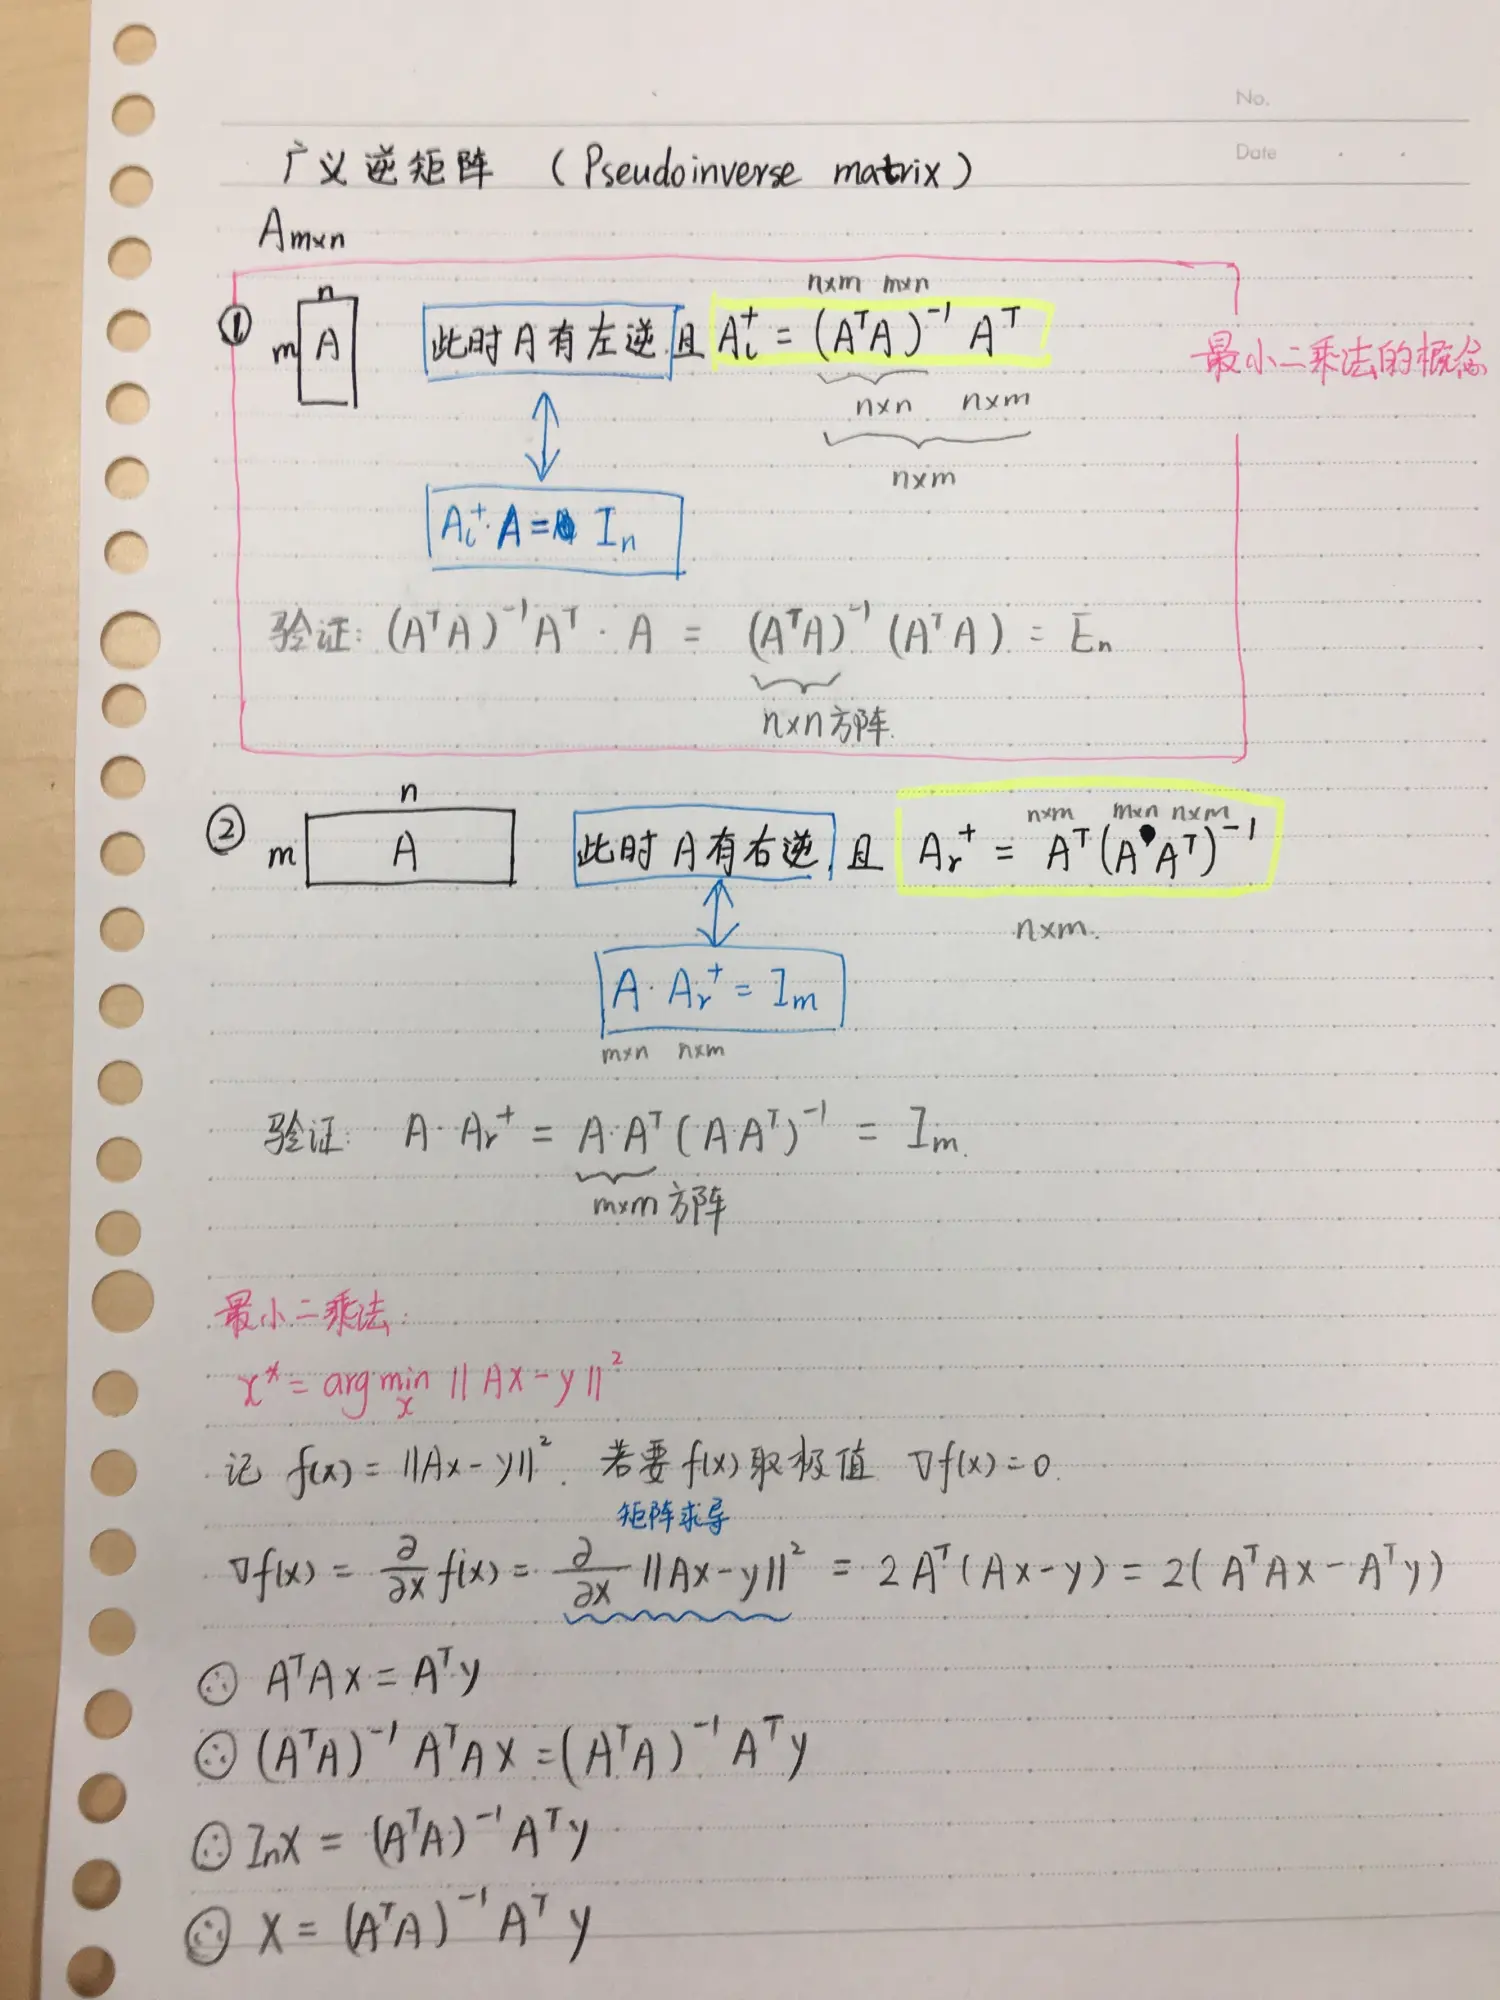 No.
Date
广义逆矩阵 (Pseudoinverse matrix)
Am×n
n
n×m m×n
① m A 此时A有左逆 且 Aι⁺ = (AᵀA)⁻¹ Aᵀ
最小二乘法的概念
n×n n×m
n×m
Aι⁺·A = In
验证: (AᵀA)⁻¹Aᵀ · A = (AᵀA)⁻¹ (AᵀA) = En
n×n方阵.
n
n×m m×n n×m
② m A 此时A有右逆 且 Ar⁺ = Aᵀ(A·Aᵀ)⁻¹
n×m.
A·Ar⁺ = Im
m×n n×m
验证: A·Ar⁺ = A·Aᵀ(A·Aᵀ)⁻¹ = Im.
m×m方阵
最小二乘法:
x* = arg min ‖Ax-y‖²
x
记 f(x) = ‖Ax-y‖². 若要f(x)取极值 ∇f(x)=0.
矩阵求导
∇f(x) = ∂/∂x f(x) = ∂/∂x ‖Ax-y‖² = 2Aᵀ(Ax-y) = 2(AᵀAx-Aᵀy)
∴ AᵀAx = Aᵀy
∴ (AᵀA)⁻¹AᵀAx = (AᵀA)⁻¹Aᵀy
∴ Inx = (AᵀA)⁻¹Aᵀy
∴ x = (AᵀA)⁻¹Aᵀy